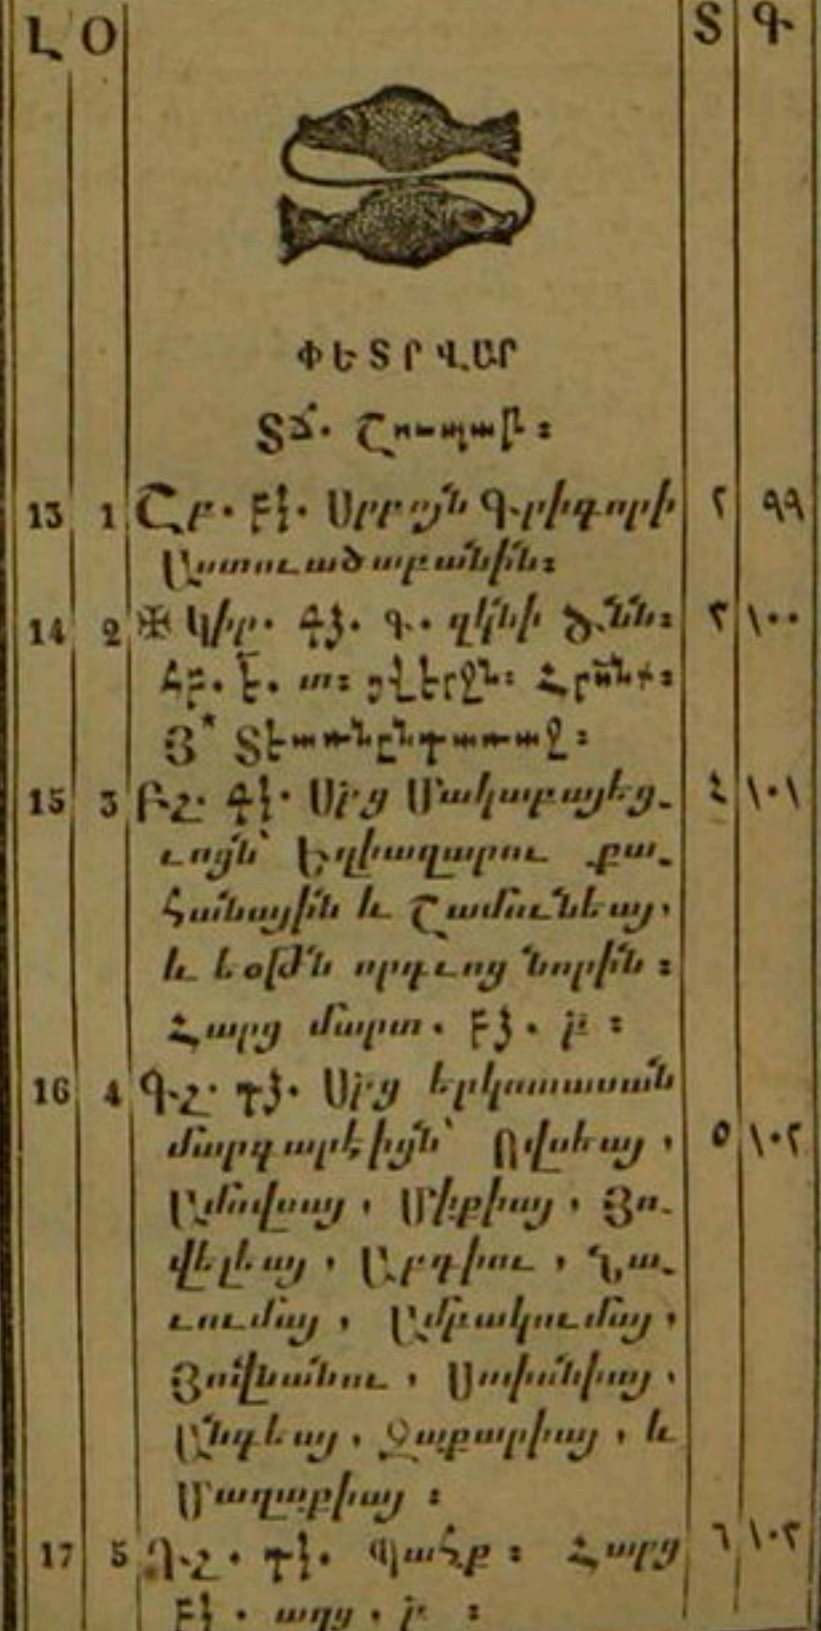 Լ Օ Տ Գ
ՓԵՏՐՎԱՐ
ՏՃ. Շուպաբ։
13 1 Շբ. ԲՁ. Սրբոյն Գրիգորի ٢ ٩٩
Աստուածաբանին։
14 2 ✠ Կիր. ԳՁ. գ. զկնի Ծննդ։ ٣ ١٠٠
Յ* Տէառնընդառաջ։
15 3 Բշ. ԳԿ. Սրց Մակաբայեց- ٤ ١٠١
ւոցն՝ Եղիազարու քա-
հանային և Շամունեայ,
և եօթն որդւոց նորին։
Հարց մարտ.
16 4 Գշ. ԴՁ. Սրց երկոտասան
մարգարէիցն՝ Ովսեայ, ٥ ١٠٢
Ամովսայ, Միքիայ, Յո-
վելեայ, Աբդիու, Նա-
ւումայ, Ամբակումայ,
Յովնանու, Սոփոնիայ,
Անգեայ, Զաքարիայ, և
Մաղաքիայ։
17 5 Դշ. ԴԿ. Պահք։ Հարց ٦ ١٠٣
ԲԿ. աղց.